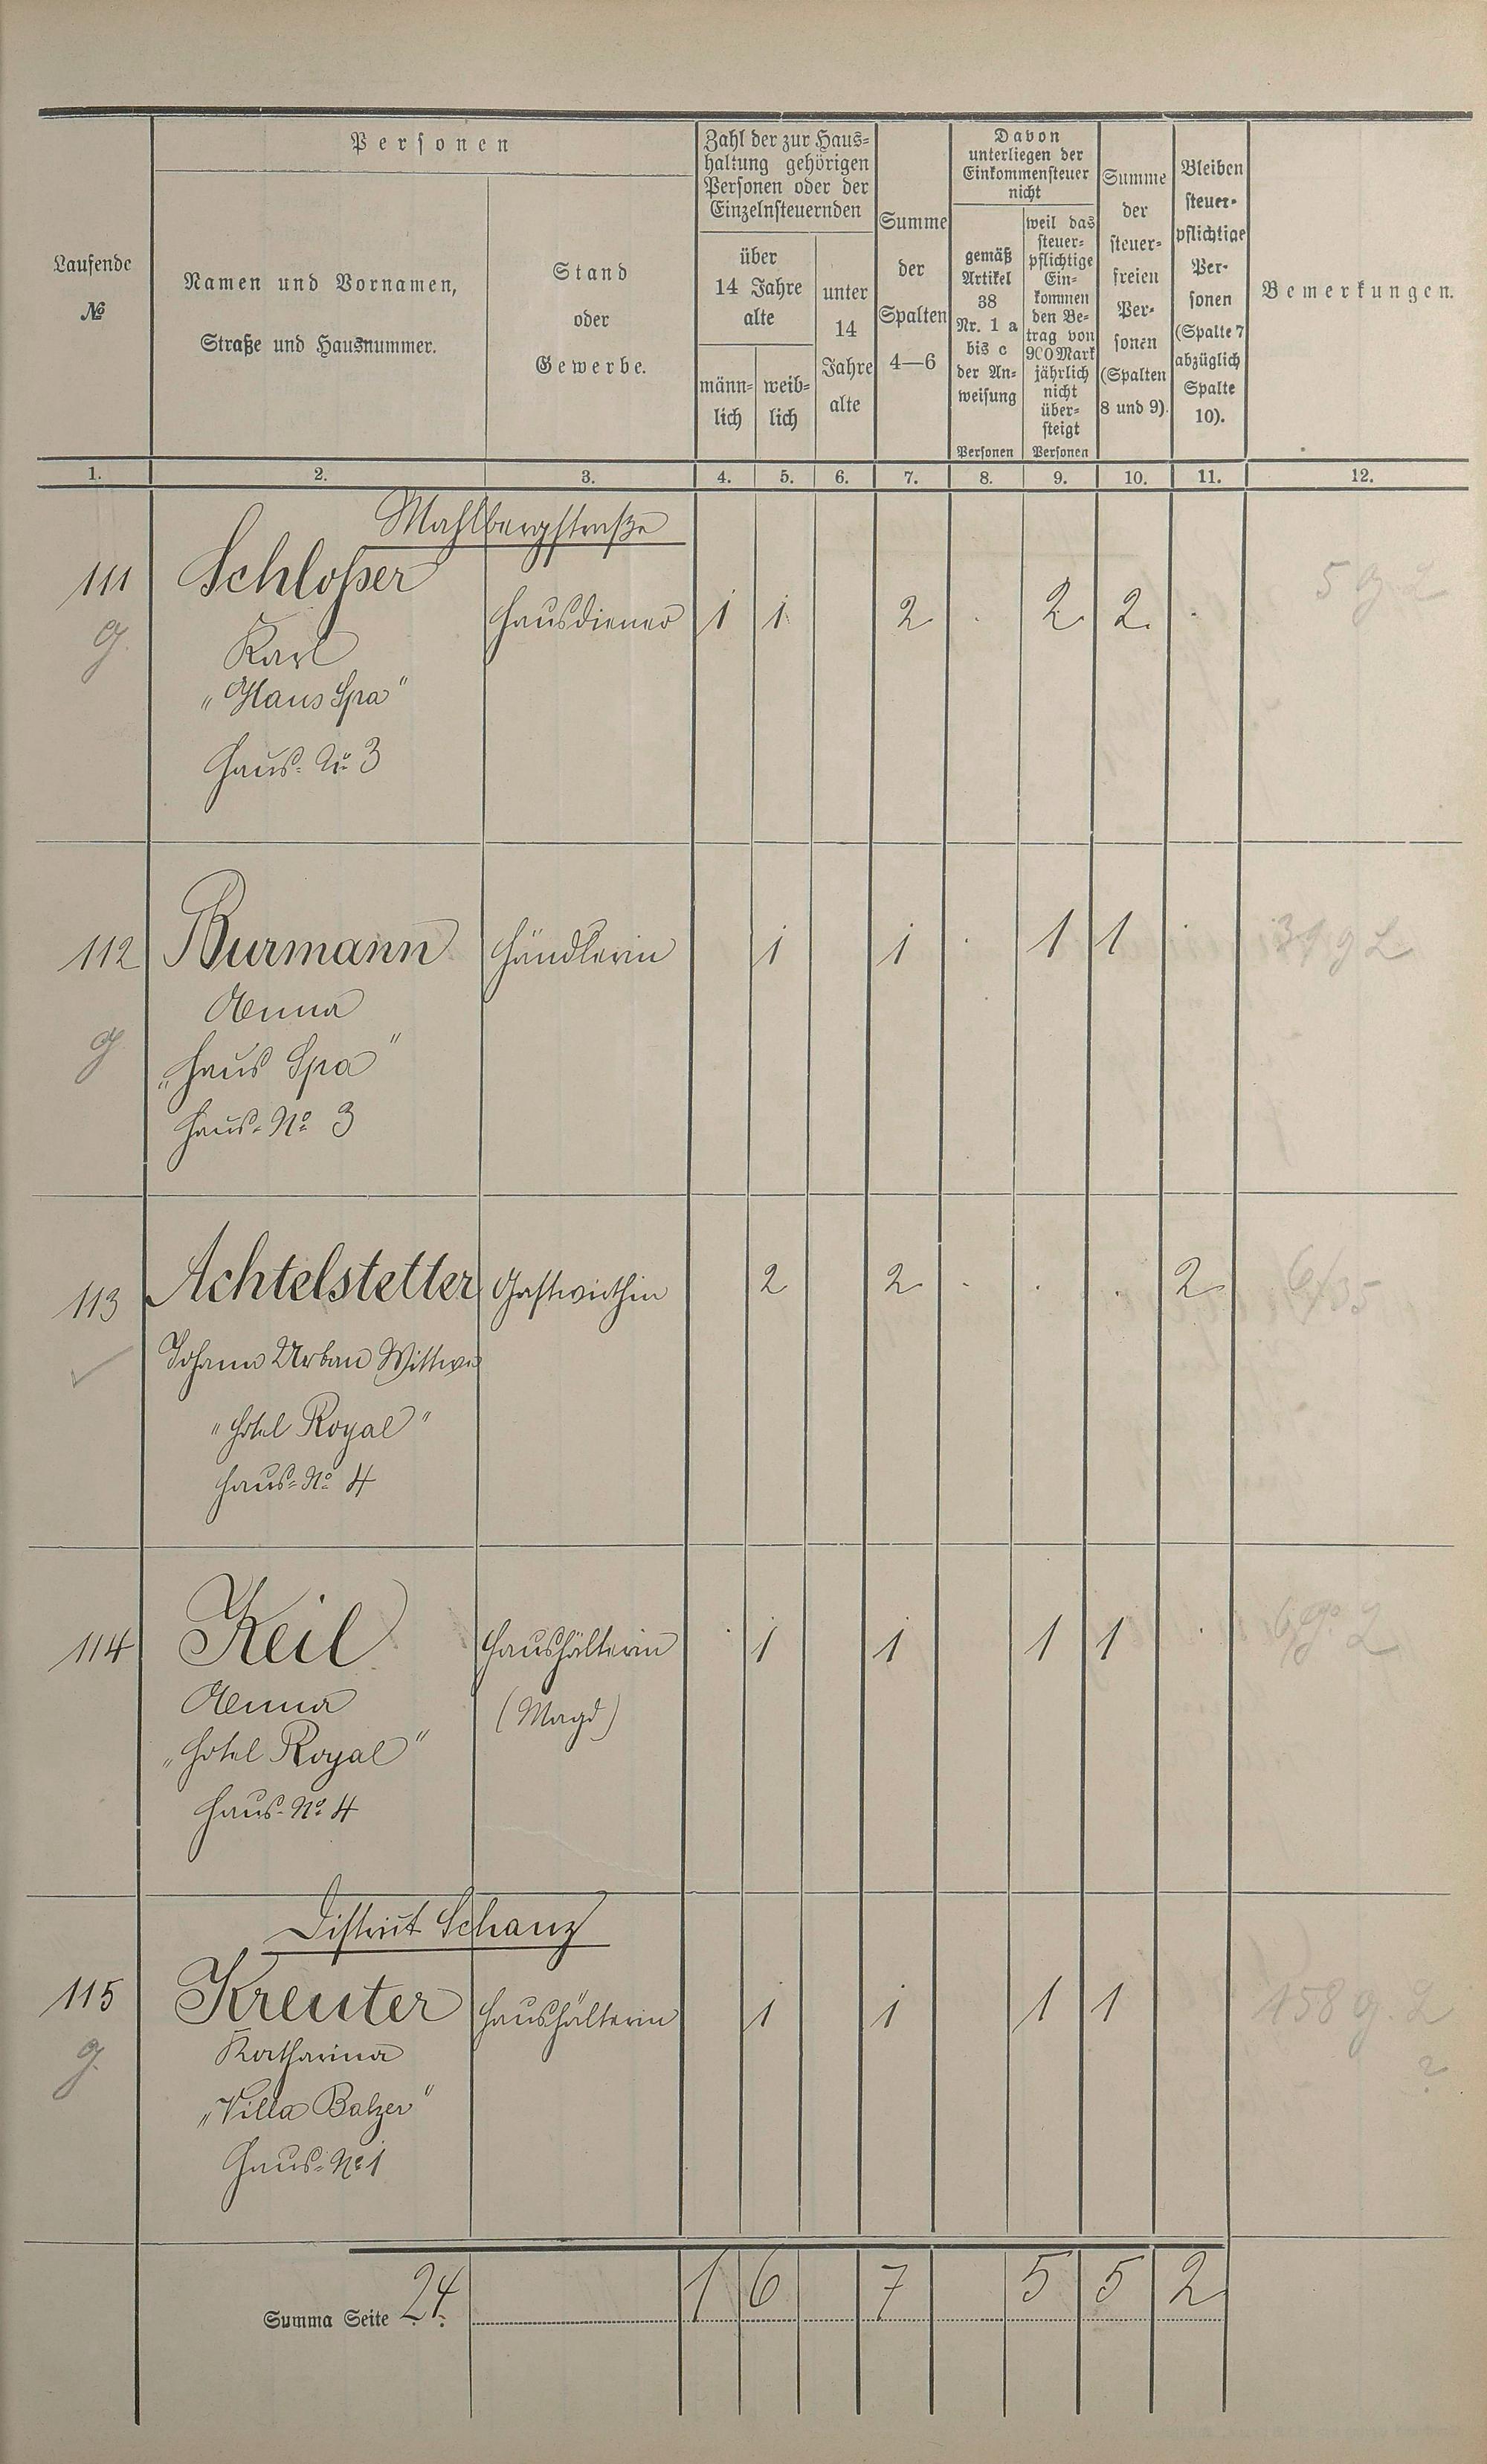 Personen
Laufende
№
Namen und Vornamen,
Straße und Hausnummer.
Stand
oder
Gewerbe.
Zahl der zur Haus=
haltung gehörigen
Personen oder der
Einzelnsteuernden
über
14 Jahre
alte
männ=
lich
weib=
lich
unter
14
Jahre
alte
Summe
der
Spalten
4—6
Davon
unterliegen der
Einkommensteuer
nicht
gemäß
Artikel
38
Nr. 1 a
bis c
der An=
weisung
Personen
weil das
steuer=
pflichtige
Ein=
kommen
den Be=
trag von
900 Mark
jährlich
nicht
über=
steigt
Personen
Summe
der
steuer=
freien
Per=
sonen
(Spalten
8 und 9).
Bleiben
steuer=
pflichtige
Per=
sonen
(Spalte 7
abzüglich
Spalte
10).
Bemerkungen.
1. 2. 3. 4. 5. 6. 7. 8. 9. 10. 11. 12.
Mahlbergstraße
111 Schloßer Hausdiener 1 1 2 . 2 2. . 5 g. L
g. Karl
"Haus Spa"
Haus= № 3
112 Burmann Händlerin 1 1 . 1 1 . 31 g L
Anna
g "Haus Spa"
Haus= № 3
113 Achtelstetter Gastwirthin 2 2 . . . 2 6/35
Johann Urban Wittwe
"Hotel Royal"
Haus= № 4
114 Keil Haushälterin . 1 1 1 1 .
Anna (Magd)
"Hotel Royal"
Haus= № 4
District Schanz
115 Kreuter Haushälterin 1 1 1 1 158 g. L
g. Katharina ?
"Villa Balzer"
Haus= № 1
Summa Seite 24. 1 6 7 5 5 2